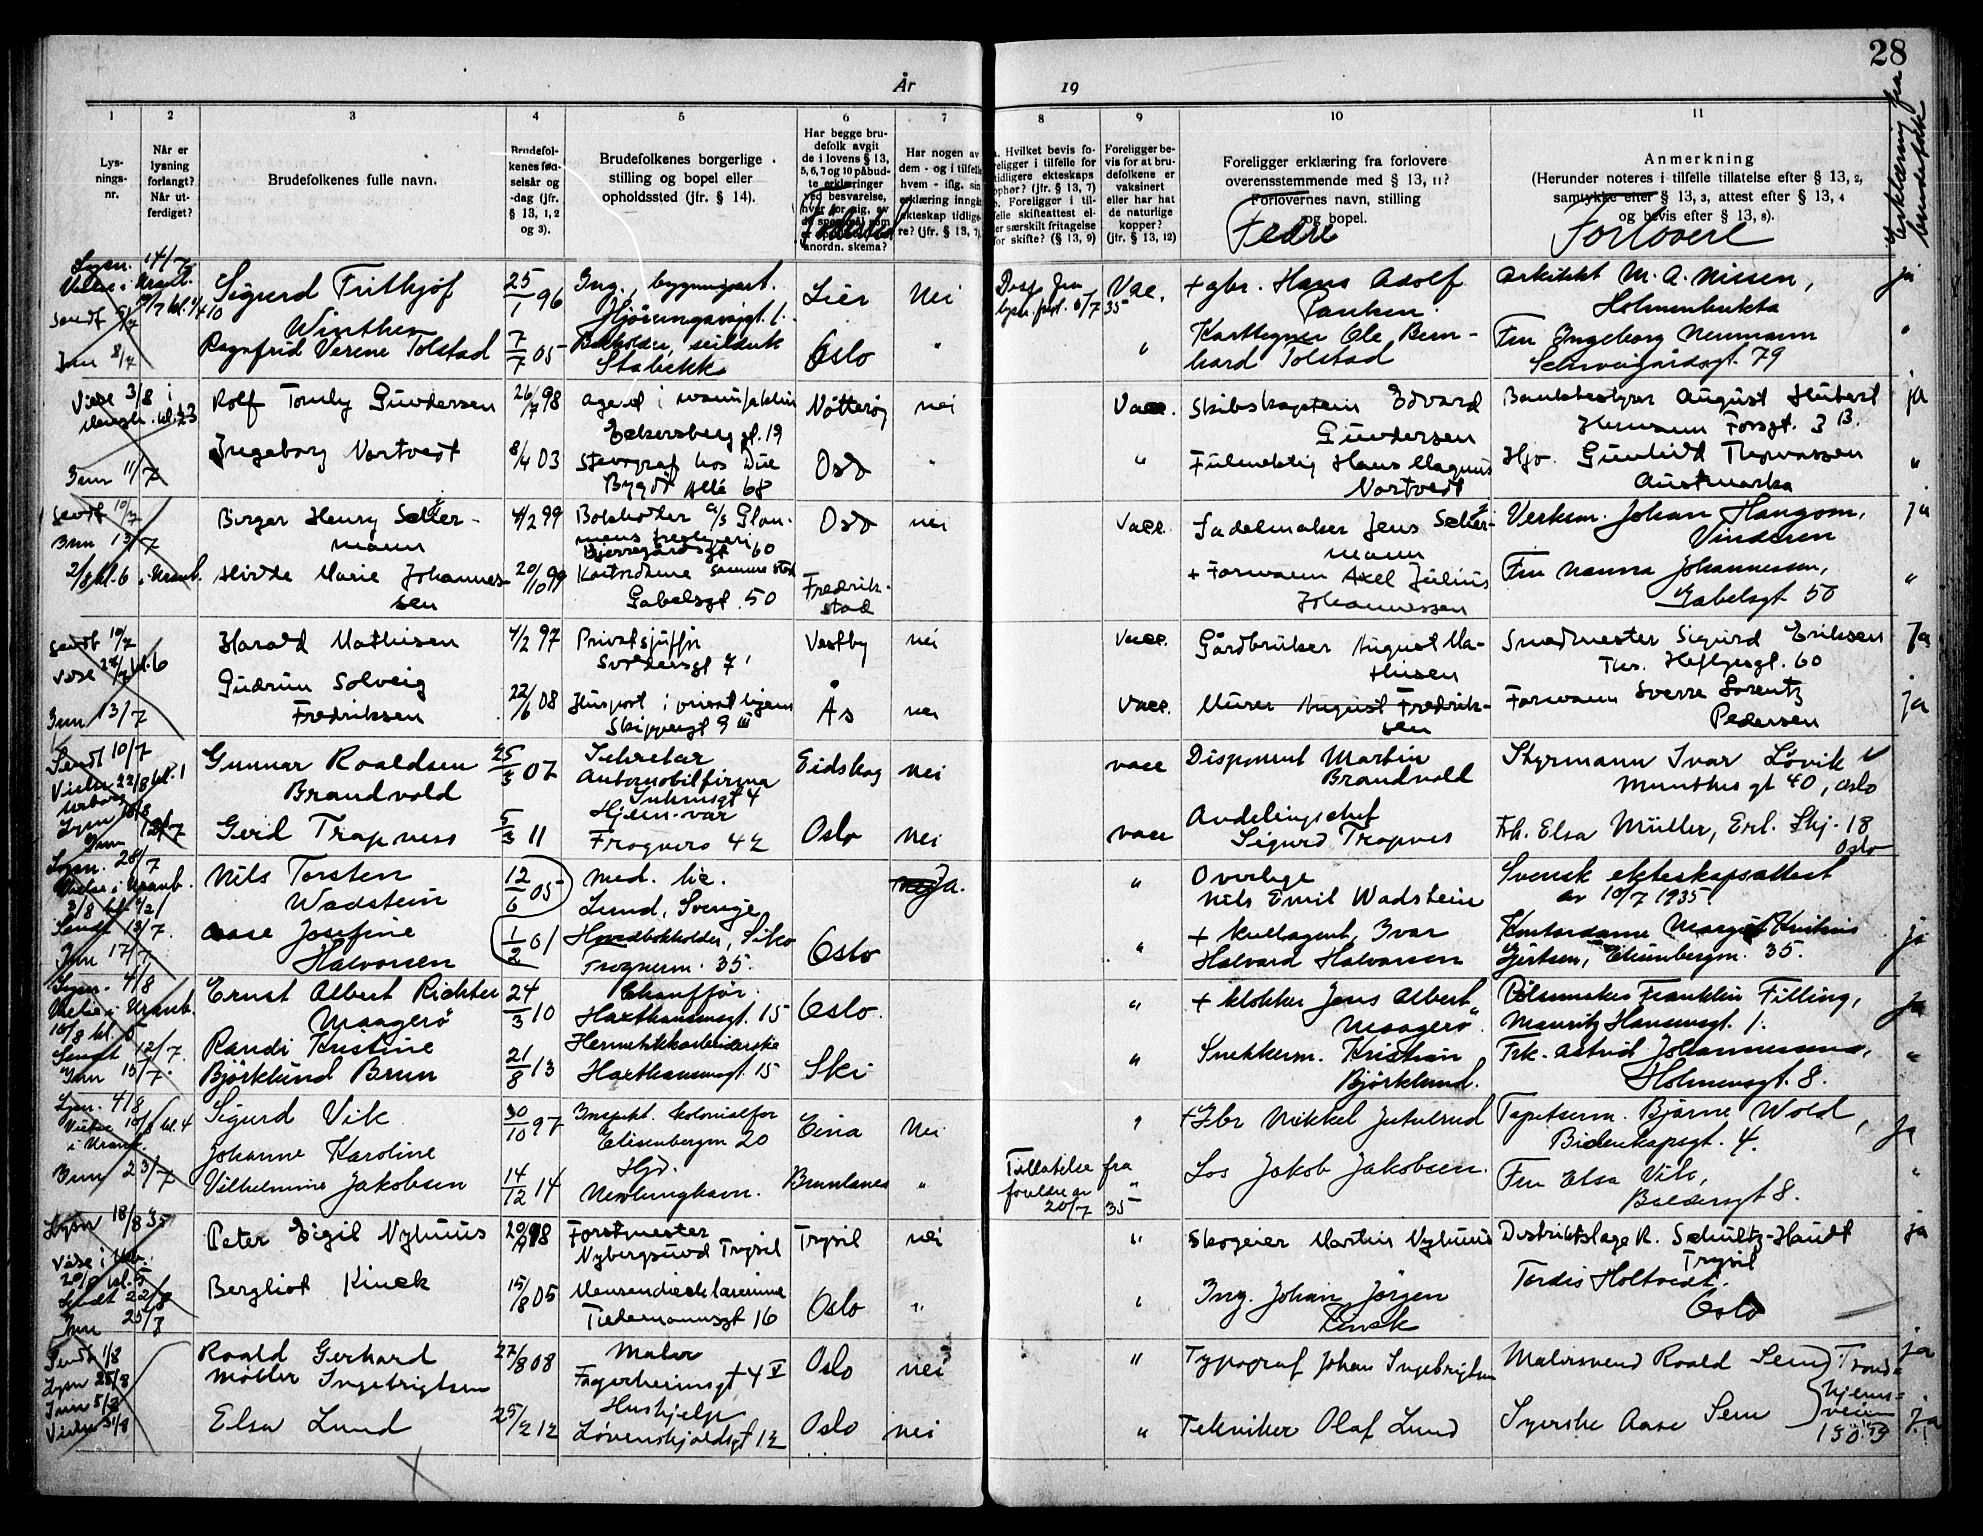 28
År
19
Erklæring fra
brudefolk
1
2
3
4
5
6
7
8
9
10
11
Lys-
nings-
nr.
Når er
lysning
forlangt?
Når ut-
ferdiget?
Brudefolkenes fulle navn.
Brudefol-
kenes fød-
selsår og
-dag (jfr.
§ 13, 1, 2
og 3).
Brudefolkenes borgerlige
stilling og bopel eller
opholdssted (jfr. § 14).
Har begge bru-
defolk avgit
de i lovens § 13,
5, 6, 7 og 10 påbud-
te erklæringer
ved besvarelse,
hver for sig, av
anordn. skema?
Fødested
Har nogen av
dem - og i tilfelle
hvem - iflg. sin
erklæring inngå
ekteskap tidlige-
re? (jfr. § 13, 7).
a. Hvilket bevis fo-
religger i tilfelle for
tidligere ekteskaps
ophør? (jfr. § 13, 7)
b. Foreligger i til-
felle skifteattest el-
ler særskilt fritagelse
for skifte? (§ 13, 9)
Foreligger be-
vis for at bru-
defolkene er
vaksinert
eller har hat
de naturlige
kopper?
(jfr. § 13, 12)
Foreligger erklæring fra forlovere
overensstemmende med § 13, 11?
Forlovernes navn, stilling
og bopel.
Fedre
Anmerkning
(Herunder noteres i tilfelle tillatelse efter § 13, 2,
samtykke efter § 13, 3, attest efter § 13, 4
og bevis efter § 13, 8).
Forlovere
Lysn. 14/7
Sigurd Frithjof
Winther
25/1 96
Ing., bygningsart.
Lier
Nei
Vac.
+ gbr. Hans Adolf
Paulsen.
Arkitekt M. A. Nissen,
Holmenbukta
ja
Inn 8/7
Ragnfrid Verene Tolstad
7/7 05
Stabekk
Oslo
"
"
Karttegner Ole Bern-
hard Tolstad
Fru Ingeborg Neumann
Schweigårdsgt. 79
"
Vise 3/8 i
Rolf Tomly Gundersen
26/7 98
Eckersberg gt. 19
Nøtterøy
nei
Vacc.
Skibskaptein Edvard
Gundersen
Bankbestyrer August Hubert
ja
Inn 11/7
Ingeborg Nortvedt
8/4 03
Stenograf hos Due
Bygdø Allé 68
Oslo
"
"
Fulmektig Hans Magnus
Nortvedt
Hjv. Gunhild Thorvassen
Austmarka
"
Sendt 10/7
Inn 13/7
Birger Henry Seller-
mann
4/2 99
Bokholder A/S Glom-
mens tresliperi
Bjerregårdsgt 60
Oslo
nei
vacc.
Sadelmaker Jens Seller-
mann
Verksm. Johan Haugom,
Vinderen
ja
2/8 kl. 6 i Uranb.
Hilde Marie Johannes-
sen
20/10 99
Kontordame samme sted
Gabelsgt. 50
Fredrik-
stad
+ Formann Axel Julius
Johannessen
Fru Nanna Johannessen,
Gabelsgt 50
"
Sendt 10/7
Harald Mathisen
4/2 97
Privatsjåfør
Vestby
nei
vacc.
Gårdbruker August Ma-
thisen
Smedmester Sigurd Eriksen
Ths. Heftyesgt. 60
Ja
Inn 13/7
Gudrun Solveig
Fredriksen
22/6 08
Huspost i privat hjem
Skippergt 9 III
Ås
nei
vacc.
Murer August Fredrik-
sen
Formann Sverre Lorentz
Pedersen
ja
Sendt 10/7
Vielse 22/8 kl. 1
Gunnar Roaldsen
Brandvold
25/3 07
Sekretær
Automobilfirma
Eidskog
nei
vacc
Disponent Martin
Brandvold
Styrmann Ivar Løvik
Munthes gt 40, Oslo
Gerd Trapness
5/3 11
Hjem-vær
Frognerv 42
Oslo
nei
vacc
Avdelingschef
Sigurd Trapnes
Frk. Elsa Müller, Erl. Skj. 18
Oslo
Lysn. 28/7
Vielse i Uranb.
Nils Torsten
Wadstein
12/6 05
med. lic.
Lund, Sverige
nei Ja.
"
Overlege
Nils Emil Wadstein
Svensk ekteskapsattest
av 10/7 1935
Sendt 13/7.
Inn 17/7.
Aase Josefine
Halvorsen
1/2 01
Hovedbokholder, Siko
Frognerv. 35.
Oslo
"
+ kullagent Ivar
Halvard Halvorsen
Kontordame Margit Kristine
Gjertsen, Elisenbergvn. 35.
ja
Lysn. 4/8
Vielse i Uranb.
10/8 kl. 5
Ernst Albert Richter
Maagerø
24/3 10
Chauffør.
Haxthausensgt. 15
Oslo.
"
+ klokker Jens Albert
Maagerø
Pølsemaker Franklin Filling,
Mauritz Hansensgt. 1.
Ja
Sendt 12/7.
Inn 15/7.
Randi Kristine
Bjørklund Brun
21/8 13
Hermetikkarbeiderske
Haxthausensgt. 15
Ski
"
Snekkerm. Kristian
Bjørklund.
Frk. Astrid Johannessen,
Holmensgt. 8.
"
Lysn. 4/8
Vielse 10/8 kl. 4
i Uranb.
Sigurd Vik
30/10 97
Inspekt. kolonialfor
Elisenbergvn 20
Eina
Nei
"
+ Gbr Mikkel Jutulrud
Tapetserm. Bjarne Wold,
Bidenkapsgt. 4.
Ja
Inn 23/7
Johanne Karoline
Vilhelmine Jakobsen
14/12 14
Hjv.
Nevlunghavn.
Brunlanes
"
Tillatelse fra
foreldre av
20/7 35
"
Los Jakob Jakobsen.
Fru Elsa Vik,
Baldersgt 8.
"
Lysn 18/8 35
Peter Eigil Nyhuus
20/9 98
Forstmester
Nybergsund Trysil
Trysil
nei
"
Skogeier Martin Nyhuus
Distriktslæge R. Schultz-Haudt
Trysil
ja
Sendt 22/8
Inn 25/8
Bergliot Kinck
15/8 05
Mensendiecklærerinne
Tidemannsgt 16
Oslo
"
"
Ing. Johan Jörgen
Kinck
Tordis Holtvedt.
Oslo
Sendt 1/8
Lysn 25/8
Inn 5/8
Vielse 31/8
Roald Gerhard
Møller Ingebrigtsen
27/8 08
Maler
Fagerheimsgt 4 V
Oslo
nei
"
Typograf Johan Ingebrigtsen
Malersvend Roald Sem
Trond-
hjems-
veien
130.
ja
Elsa Lund
25/2 12
Hushjelp
Løvenskjoldsgt 12
Oslo
nei
"
Tekniker Olaf Lund
Syerske Aase Sem
ja